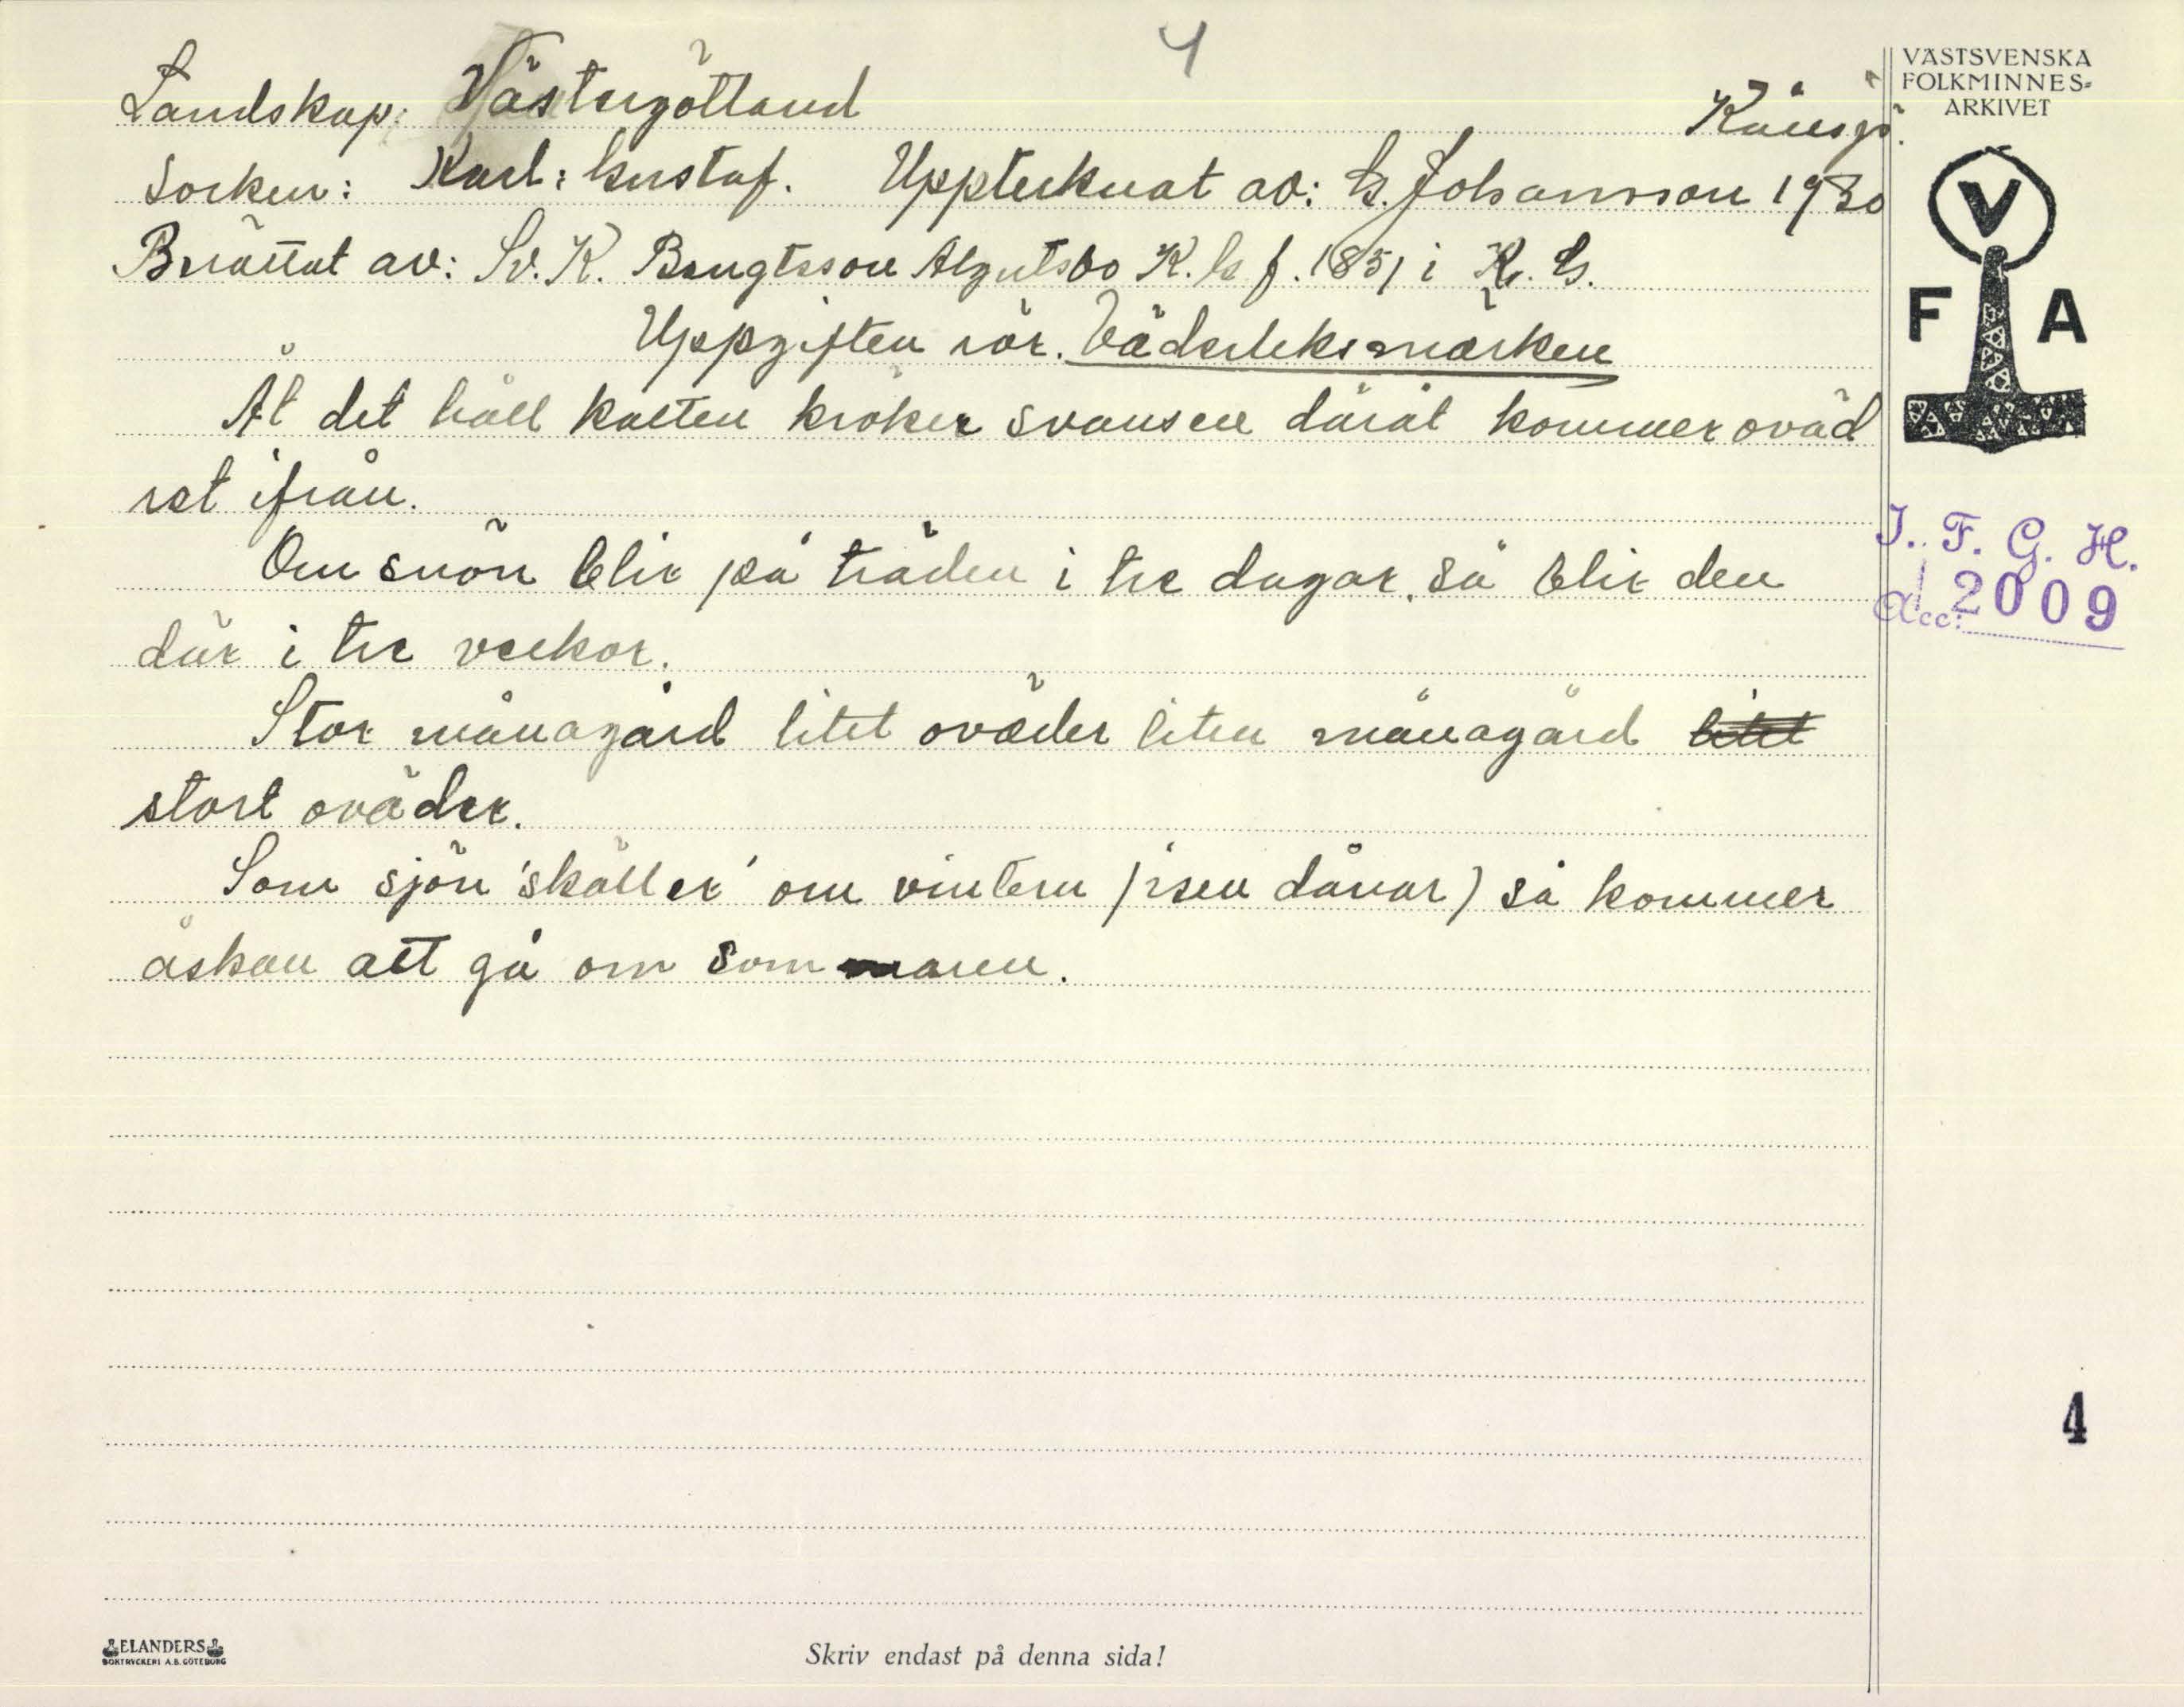 4
VÄSTSVENSKA
FOLKMINNES-
ARKIVET
Landskap: Västergötland
Kånsjö.
Socken: Karl: Gustaf. Upptecknat av: G. Johansson 1930
Berättat av: Sv. K. Bengtsson Algutsbo K. G. f. 1851 i K. G.
Uppgiften rör. Väderleksmärken
V
F A
Åt det håll katten kröker svansen däråt kommer oväd
ret ifrån.
Om snön blir på träden i tre dagar, så blir den
där i tre veckor.
Stor månagård litet oväder liten månagård litet
stort oväder.
Som sjön 'skäller' om vintern (isen dånar) så kommer
åskan att gå om sommaren.
I. F. G. H.
Acc: 2009
4
ELANDERS
BOKTRYCKERI A.B. GÖTEBORG
Skriv endast på denna sida!